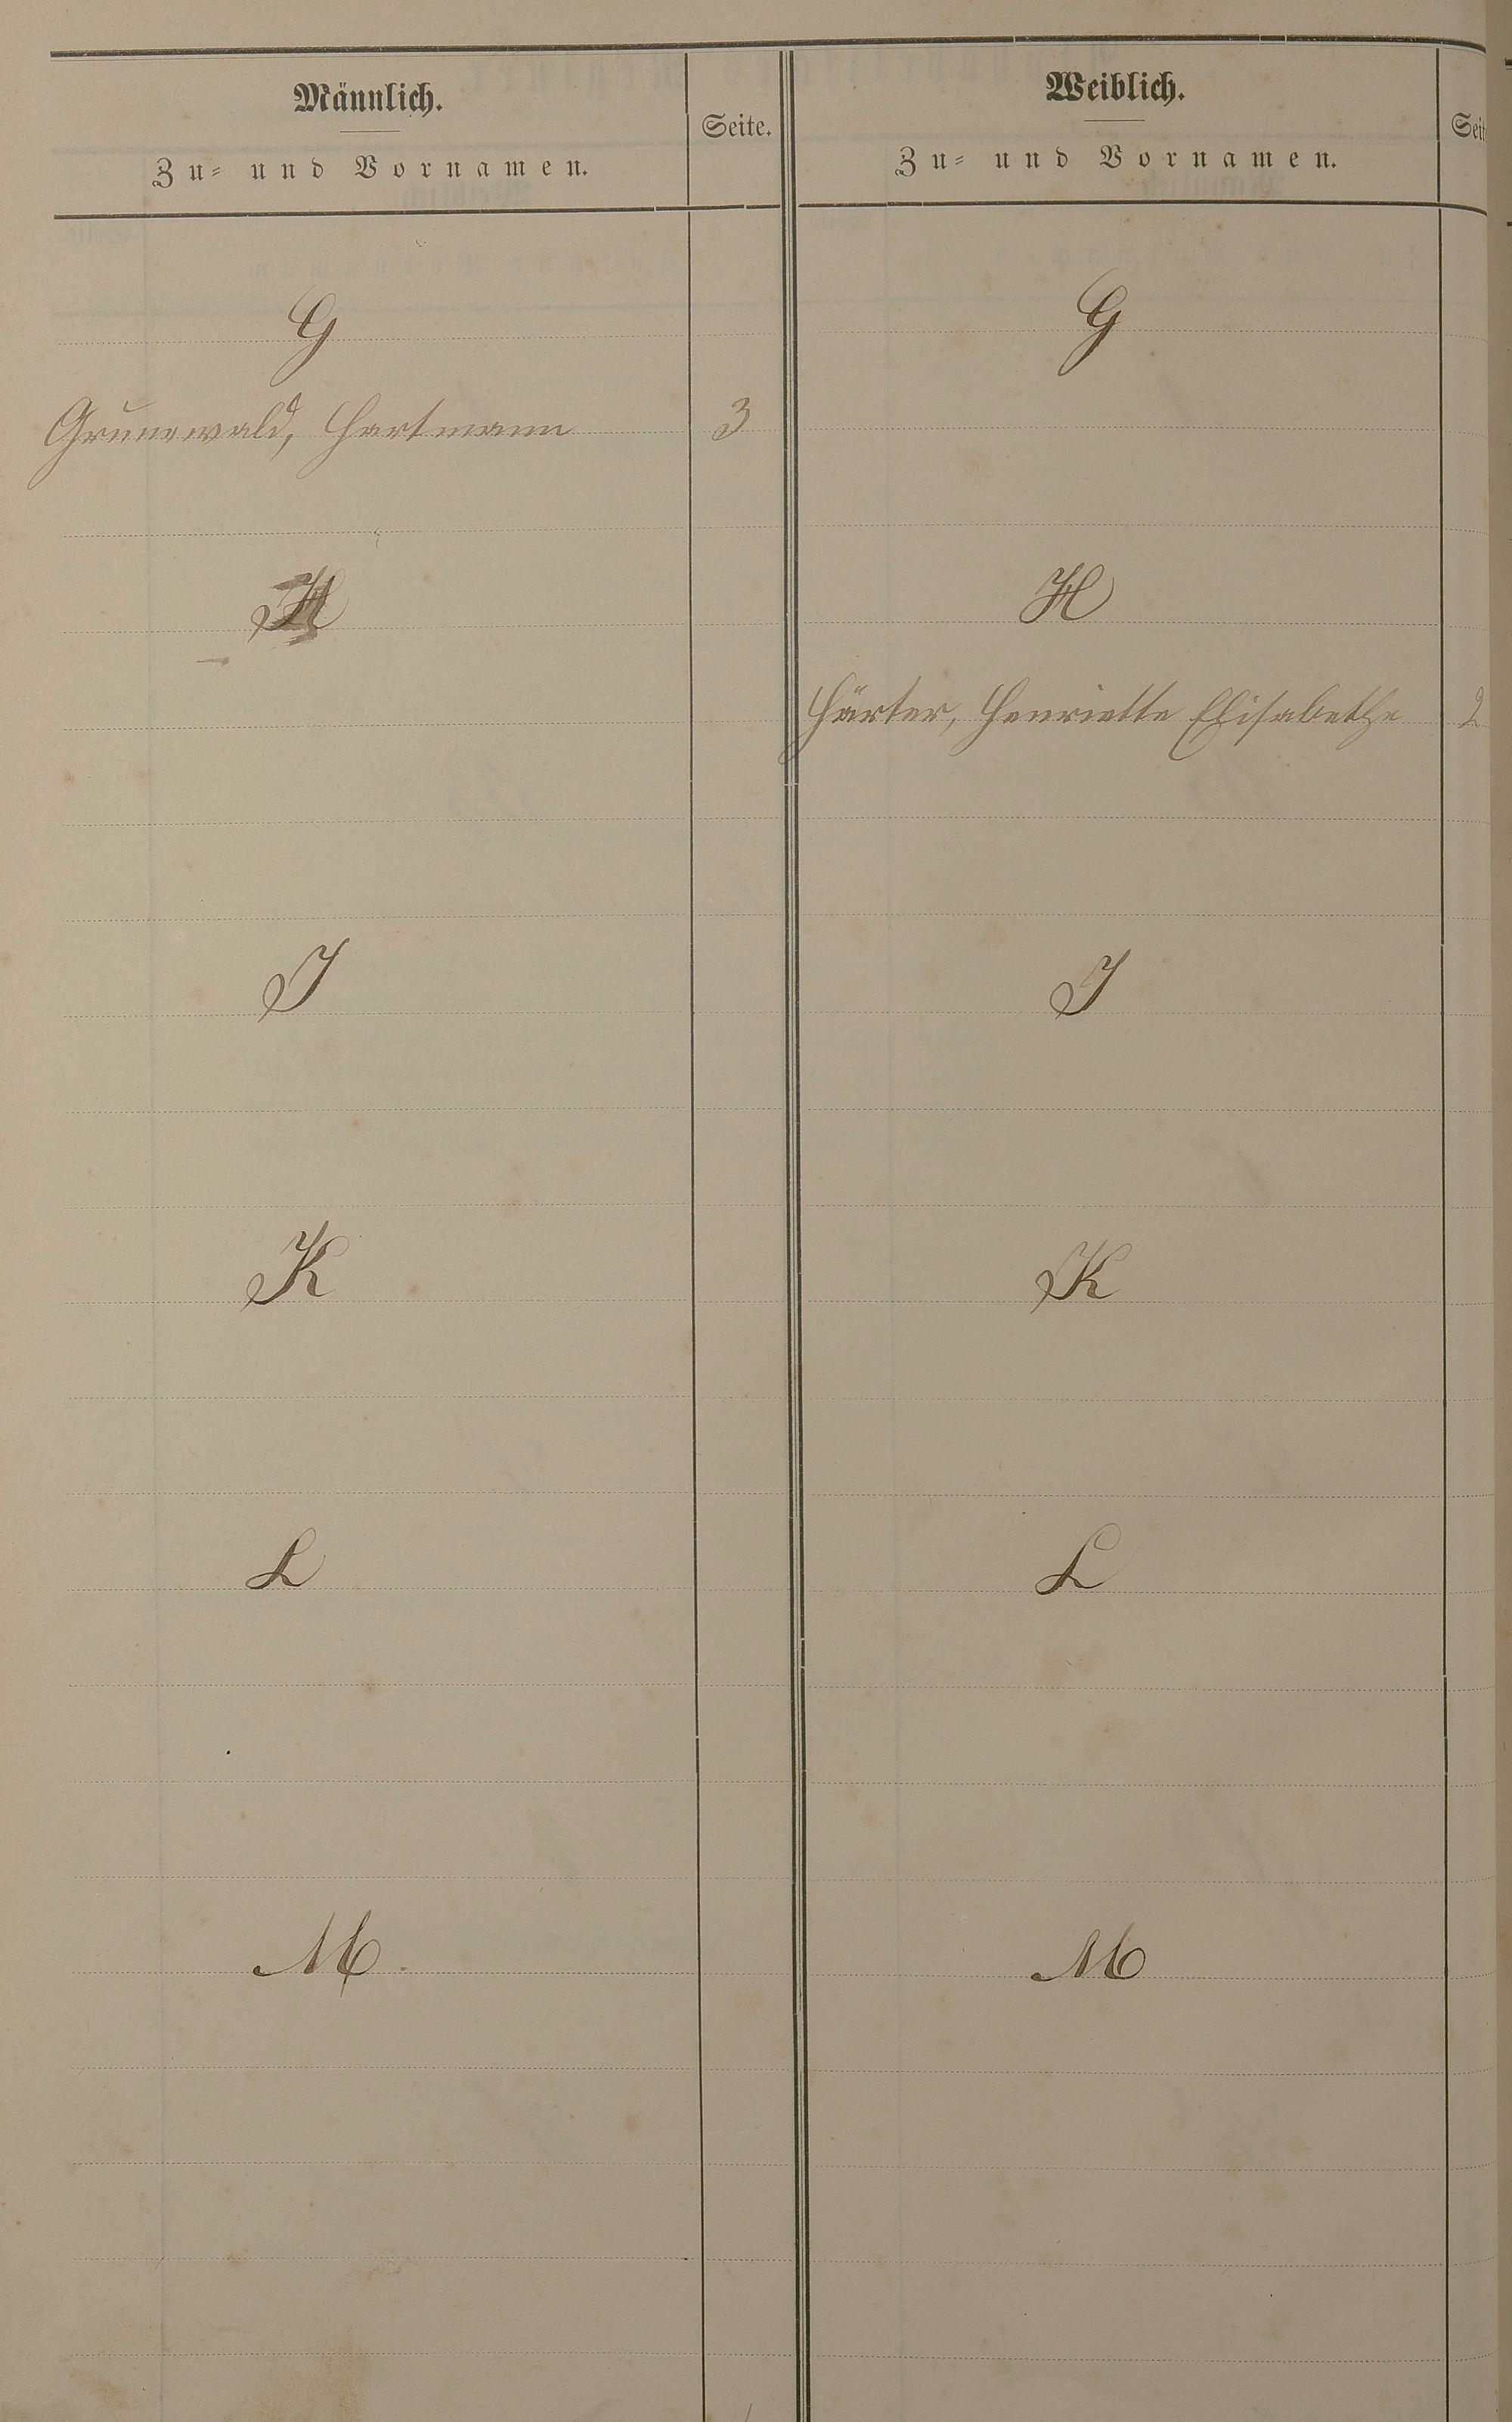 Männlich.
Zu- und Vornamen.
Seite.
Weiblich.
Zu- und Vornamen.
Seit
G
G
Grunewald, Hartmann 3
H
H
Härter, Henriette Elisabethe 2
J
J
K
K
L
L
M.
M